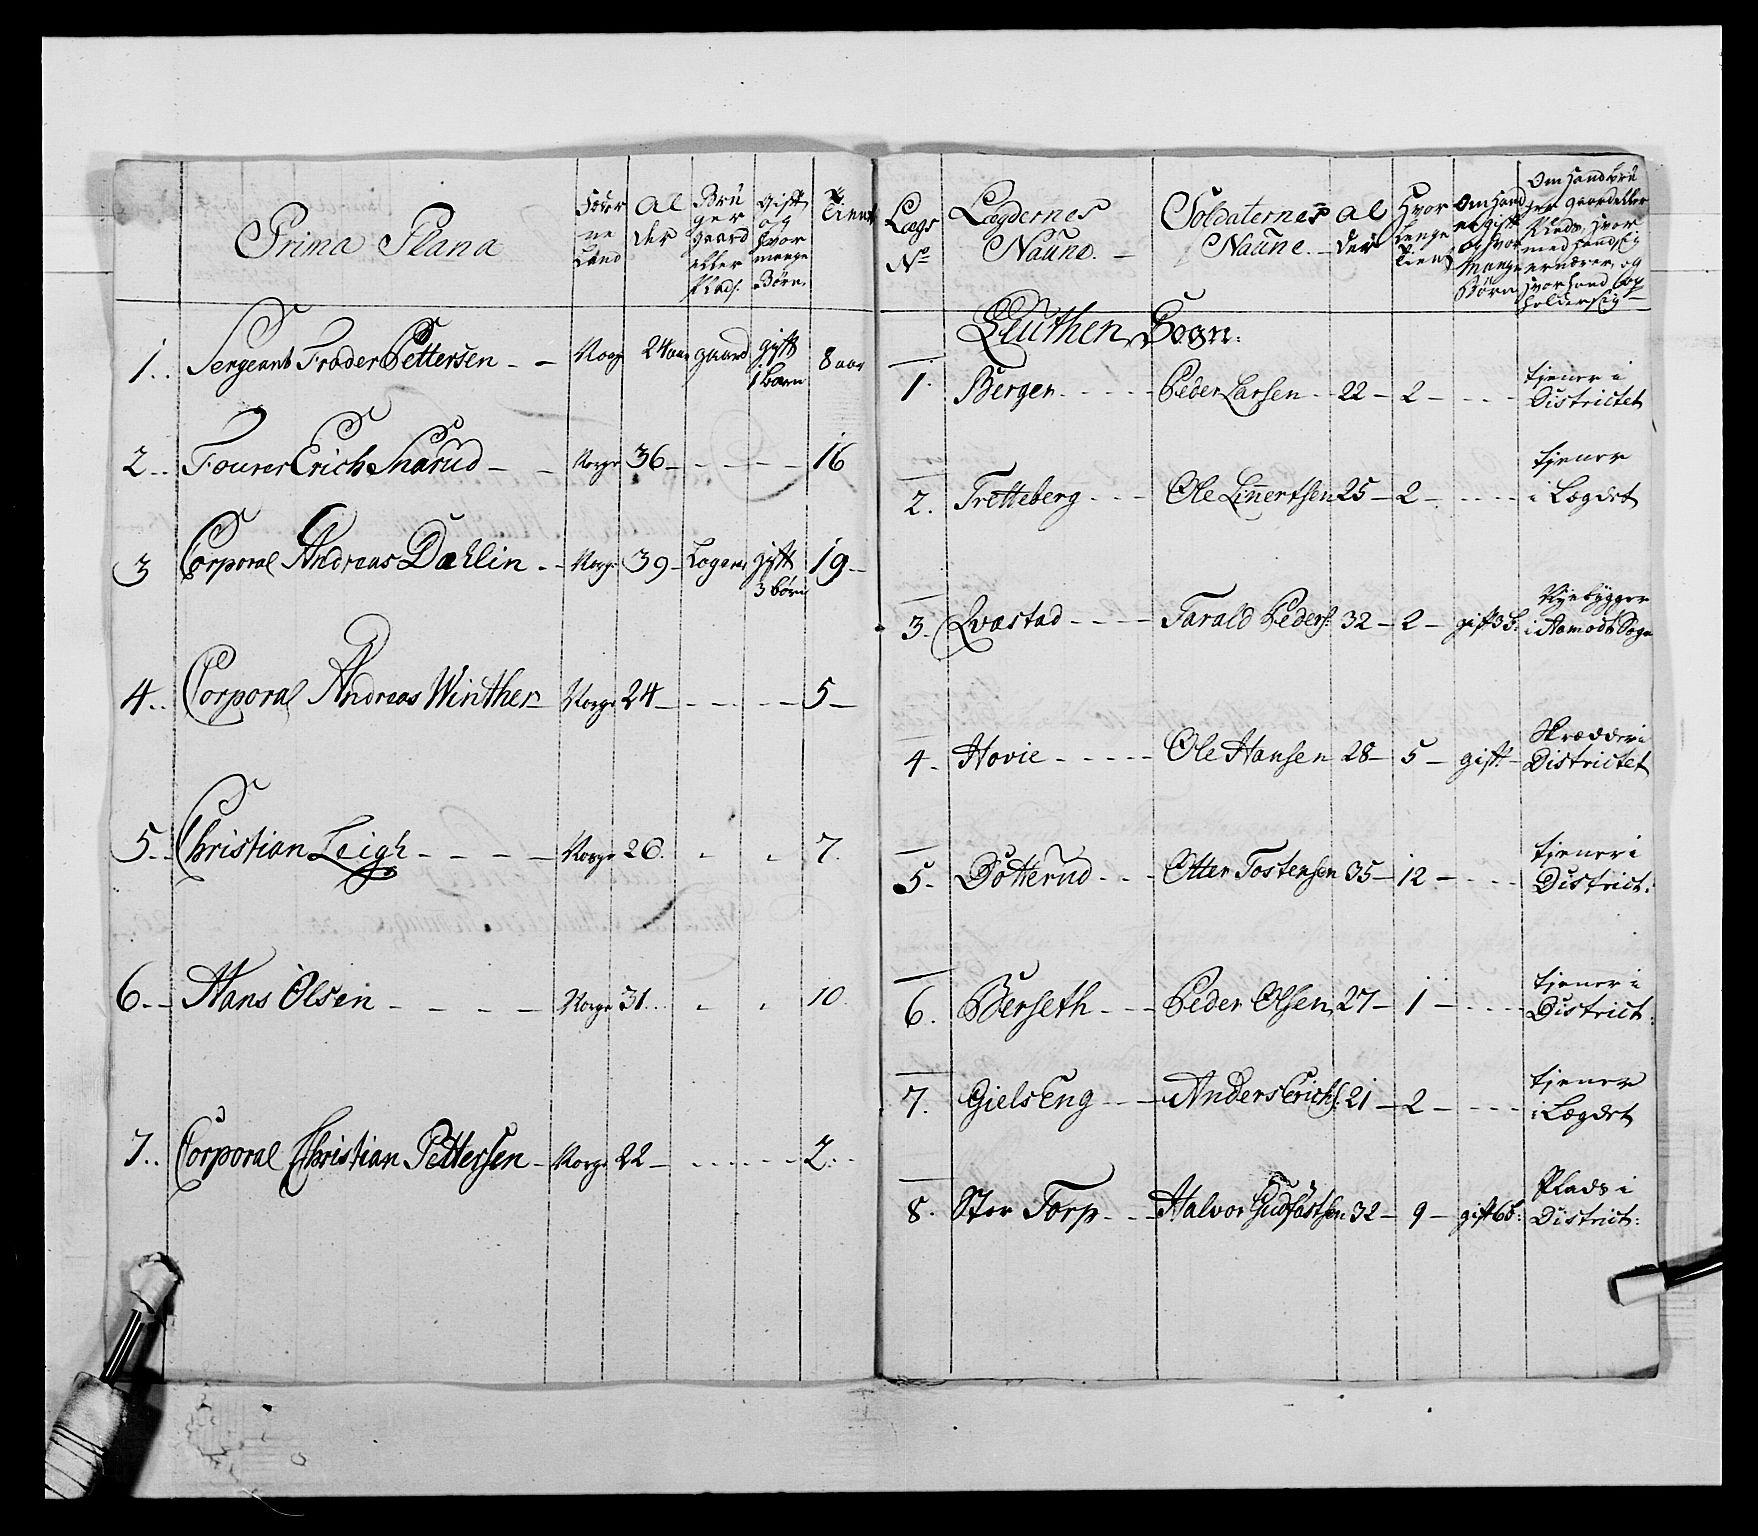 Prima Plana
Föder ne Land
Al der
Bru ger gaard eller Plads.
Gift og hvor mange Börn
Tient
1.. Sergeant Frader Pettersen - - Norge 24 aar gaard gift 1 barn 8 aar
2.. Fourer Erich Snarud - - Norge 36 - - - - - 16
3 Corporal Andreas Dahlin - - Norge 39 - Logerer gift 3 börn 19 -
4.. Corporal Andreas Winther - Norge 24 - - - - - 5 -
5.. Christian Leigh - - - - Norge 26. 7.
6.. Hans Olsen - - - - Norge 31. 10.
7.. Corporal Christian Pettersen - Norge 22 - - - - - 2..
Lægs No
Lægdernes Naune. -
Soldaternes Naune. -
Al der
Hvor lenge tient
Om hand er gift og hvor mange Börn
Om hand bru ger gaard eller Plads, hvor med hand sig ernærer, og hvor hand op holder sig -
Leuthen Sogn:
1. Bergen - - - - Peder Larsen - 22 - 2 - - - - tjener i Districtet
2. Tretteberg - - - Ole Linnertsen 25 - 2 - - - - tjener i Lægdet
3. Qvæstad - - - - Tarald Peders: 32 - 2 - gift 3 b: Nyebygger i Aamodt Sogn
4. Hovie - - - - - Ole Hansen 28 - 5 - gift - Skrædder i Districtet
5. Dotterud - - - Otter Tostensen 35 - 12 - - - tjener i District:
6. Berseth - - - Peder Olsen 27 - 1 - - - - tjener i District:
7. Gielseng - - - Anders Erichs: 21 - 2 - - - - tjener i Lægdet
8. Stor Torp - - - Halvor Gudfastsen 32 - 9 - gift 6 b: Plads i District: